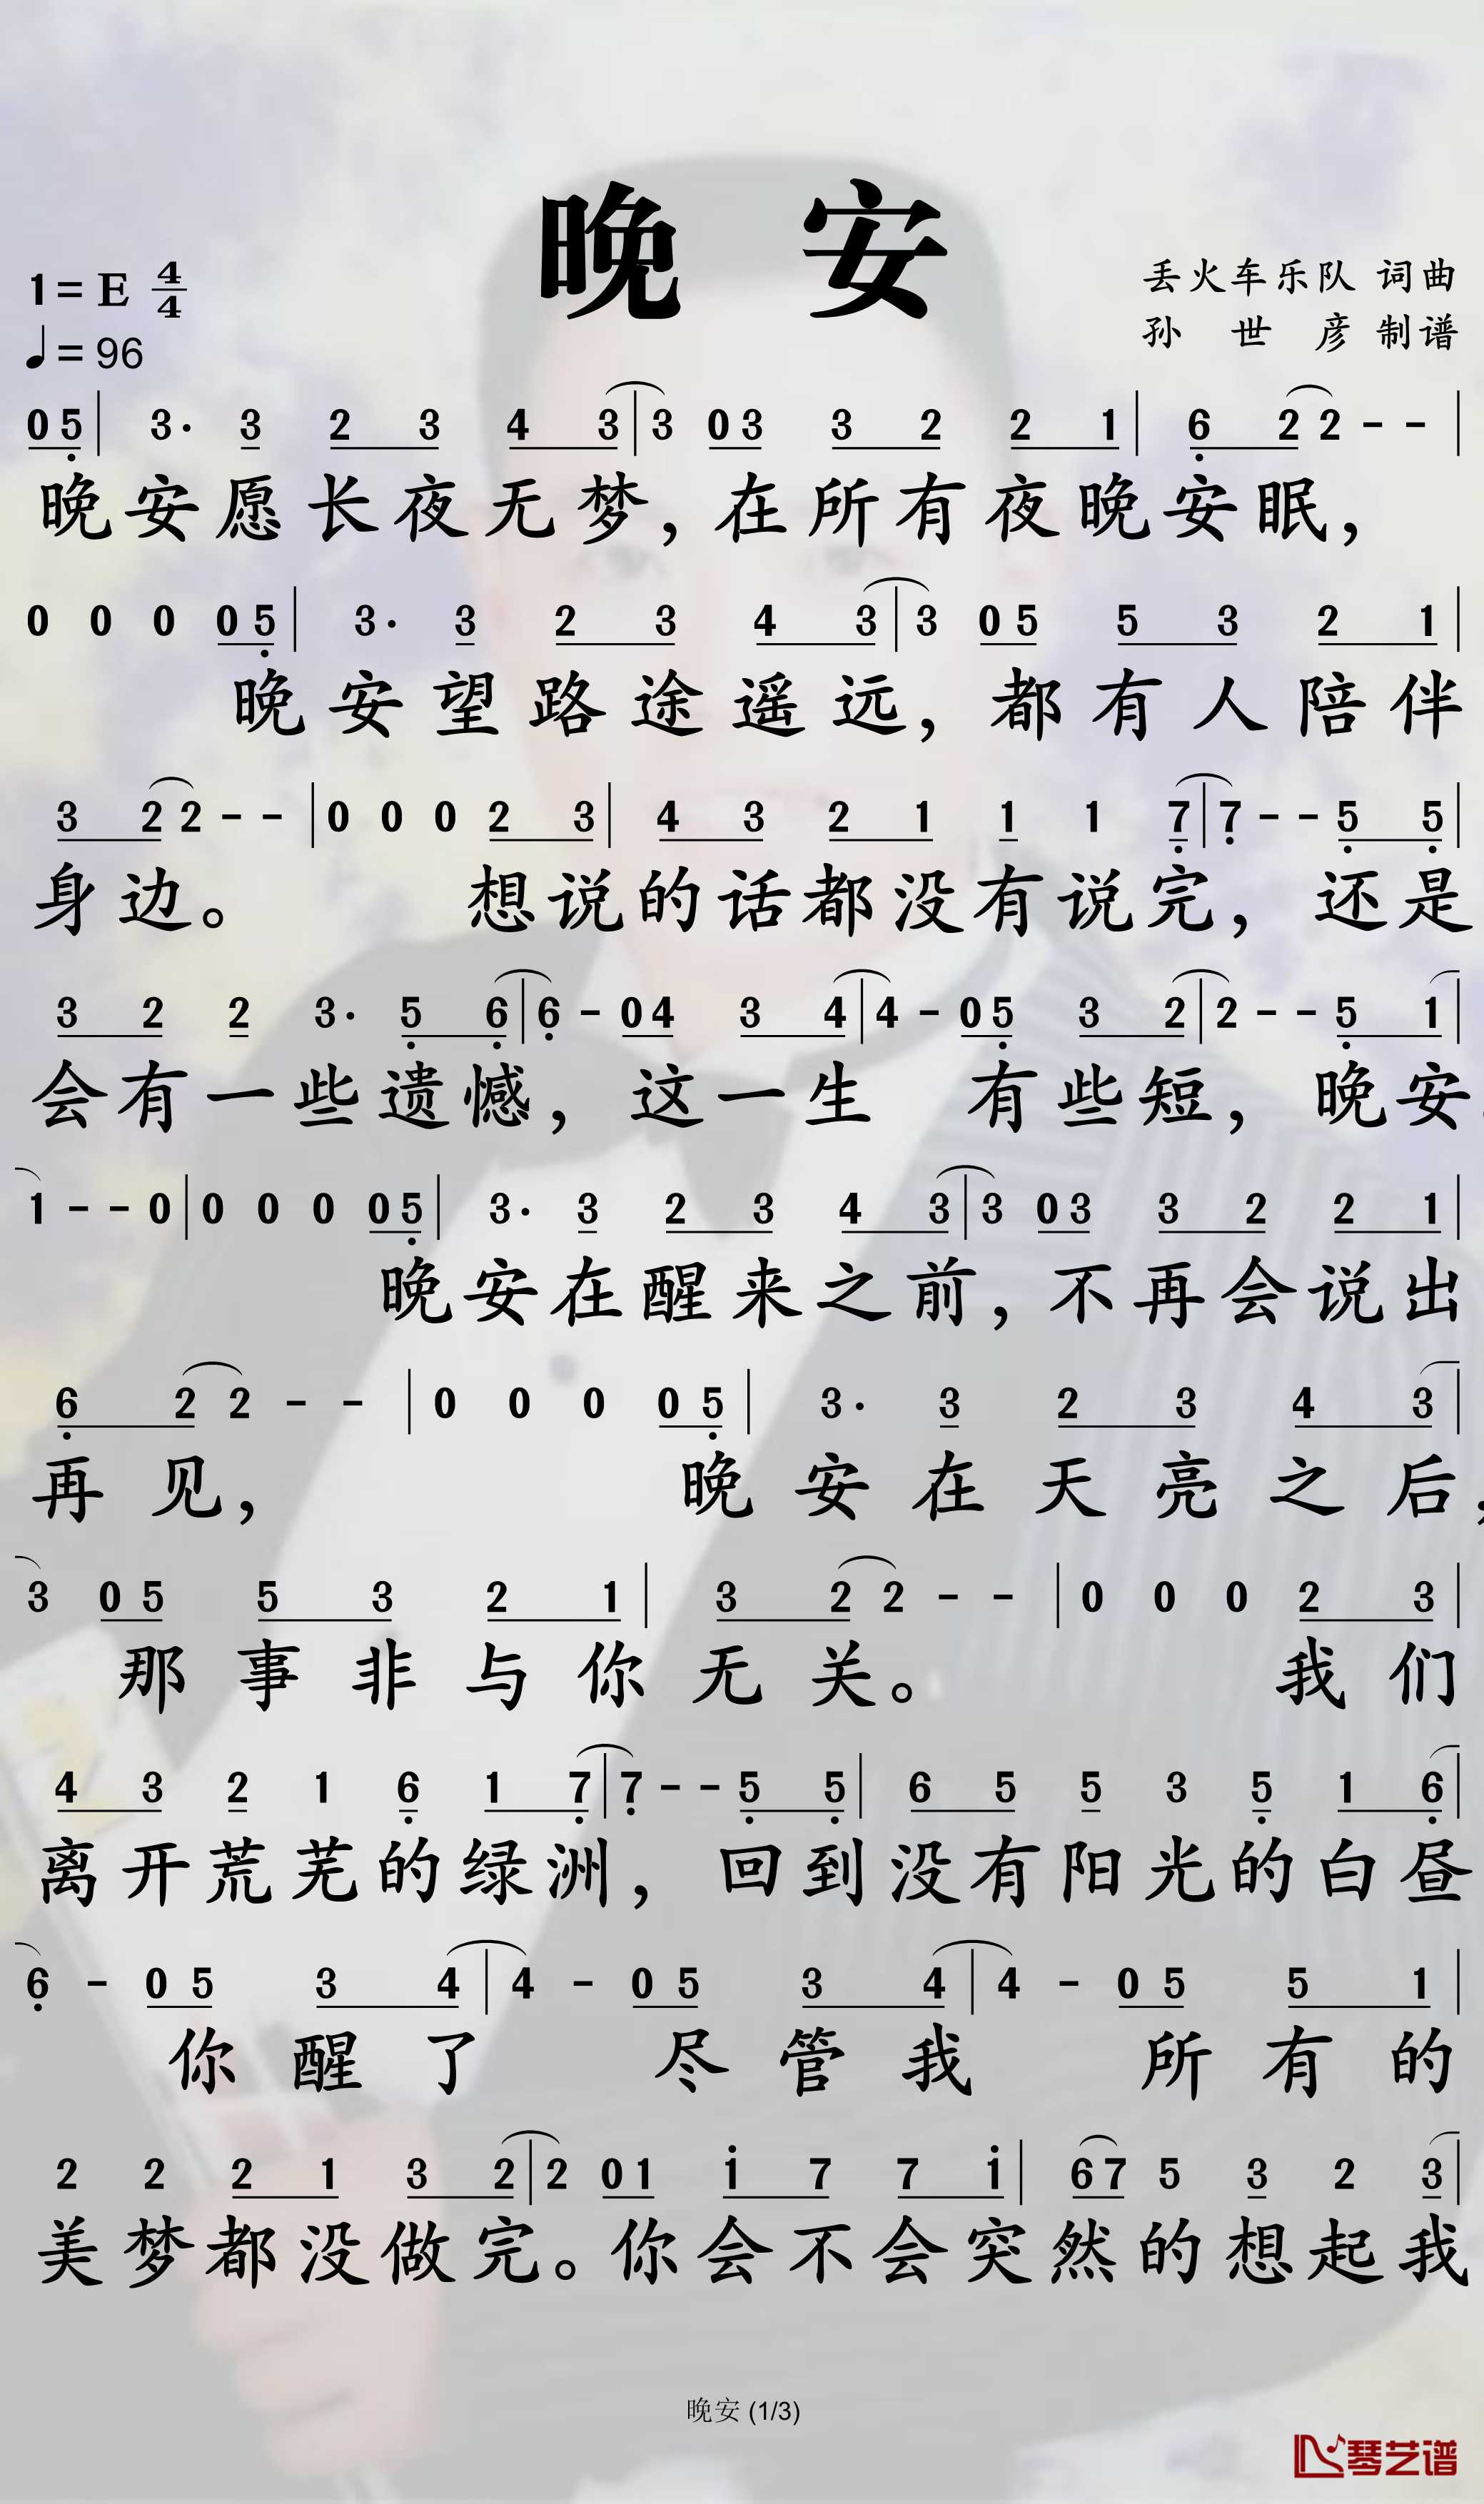 晚 安
1= E 4/4
丢火车乐队 词曲
♩= 96
孙 世 彦 制谱
0 5 | 3· 3 2 3 4 3 | 3 0 3 3 2 2 1 | 6 2 2 - - |
晚安愿长夜无梦，在所有夜晚安眠，
0 0 0 0 5 | 3· 3 2 3 4 3 | 3 0 5 5 3 2 1 |
晚安望路途遥远，都有人陪伴
3 2 2 - - | 0 0 0 2 3 | 4 3 2 1 1 1 7 | 7 - - 5 5 |
身边。 想说的话都没有说完，还是
3 2 2 3· 5 6 | 6 - 0 4 3 4 | 4 - 0 5 3 2 | 2 - - 5 1 |
会有一些遗憾，这一生 有些短，晚安
1 - - 0 | 0 0 0 0 5 | 3· 3 2 3 4 3 | 3 0 3 3 2 2 1 |
晚安在醒来之前，不再会说出
6 2 2 - - | 0 0 0 0 5 | 3· 3 2 3 4 3 |
再见， 晚安在天亮之后，
3 0 5 5 3 2 1 | 3 2 2 - - | 0 0 0 2 3 |
那事非与你无关。 我们
4 3 2 1 6 1 7 | 7 - - 5 5 | 6 5 5 3 5 1 6 |
离开荒芜的绿洲，回到没有阳光的白昼
6 - 0 5 3 4 | 4 - 0 5 3 4 | 4 - 0 5 5 1 |
你醒了 尽管我 所有的
2 2 2 1 3 2 | 2 0 1 i 7 7 i | 6 7 5 3 2 3 |
美梦都没做完。你会不会突然的想起我
晚安 (1/3)
琴艺谱